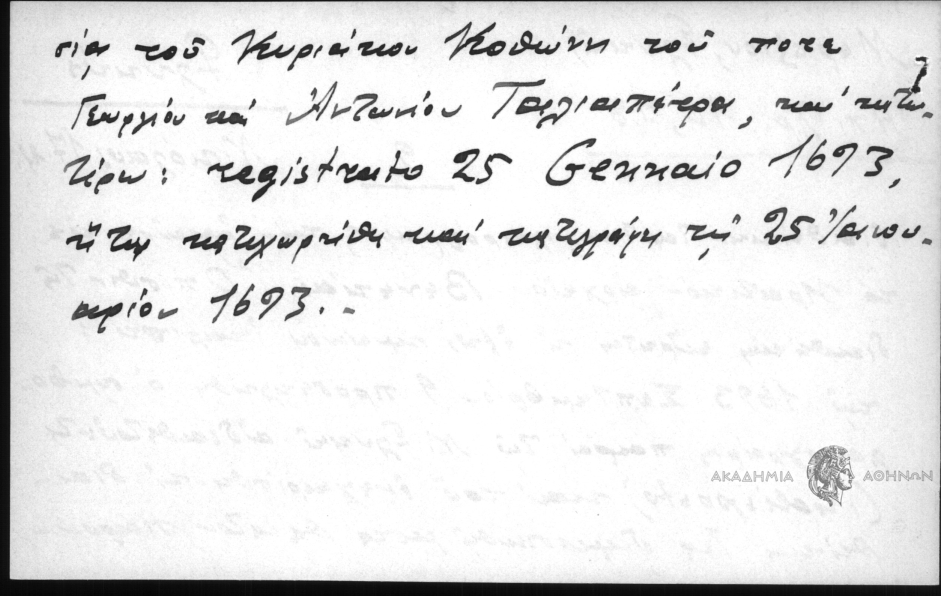 σίᾳ τοῦ Κυριάκου Κοθώνη τοῦ ποτε
Γεωργίου καὶ Ἀντωνίου Ταλιαπέτρα, καὶ κατω-
τέρω: registrato 25 Gennaio 1693,
ἤτοι κατεχωρήθη καὶ κατεγράφη τῇ 25 Ἰανου-
αρίου 1693.-
ΑΚΑΔΗΜΙΑ ΑΘΗΝΩΝ